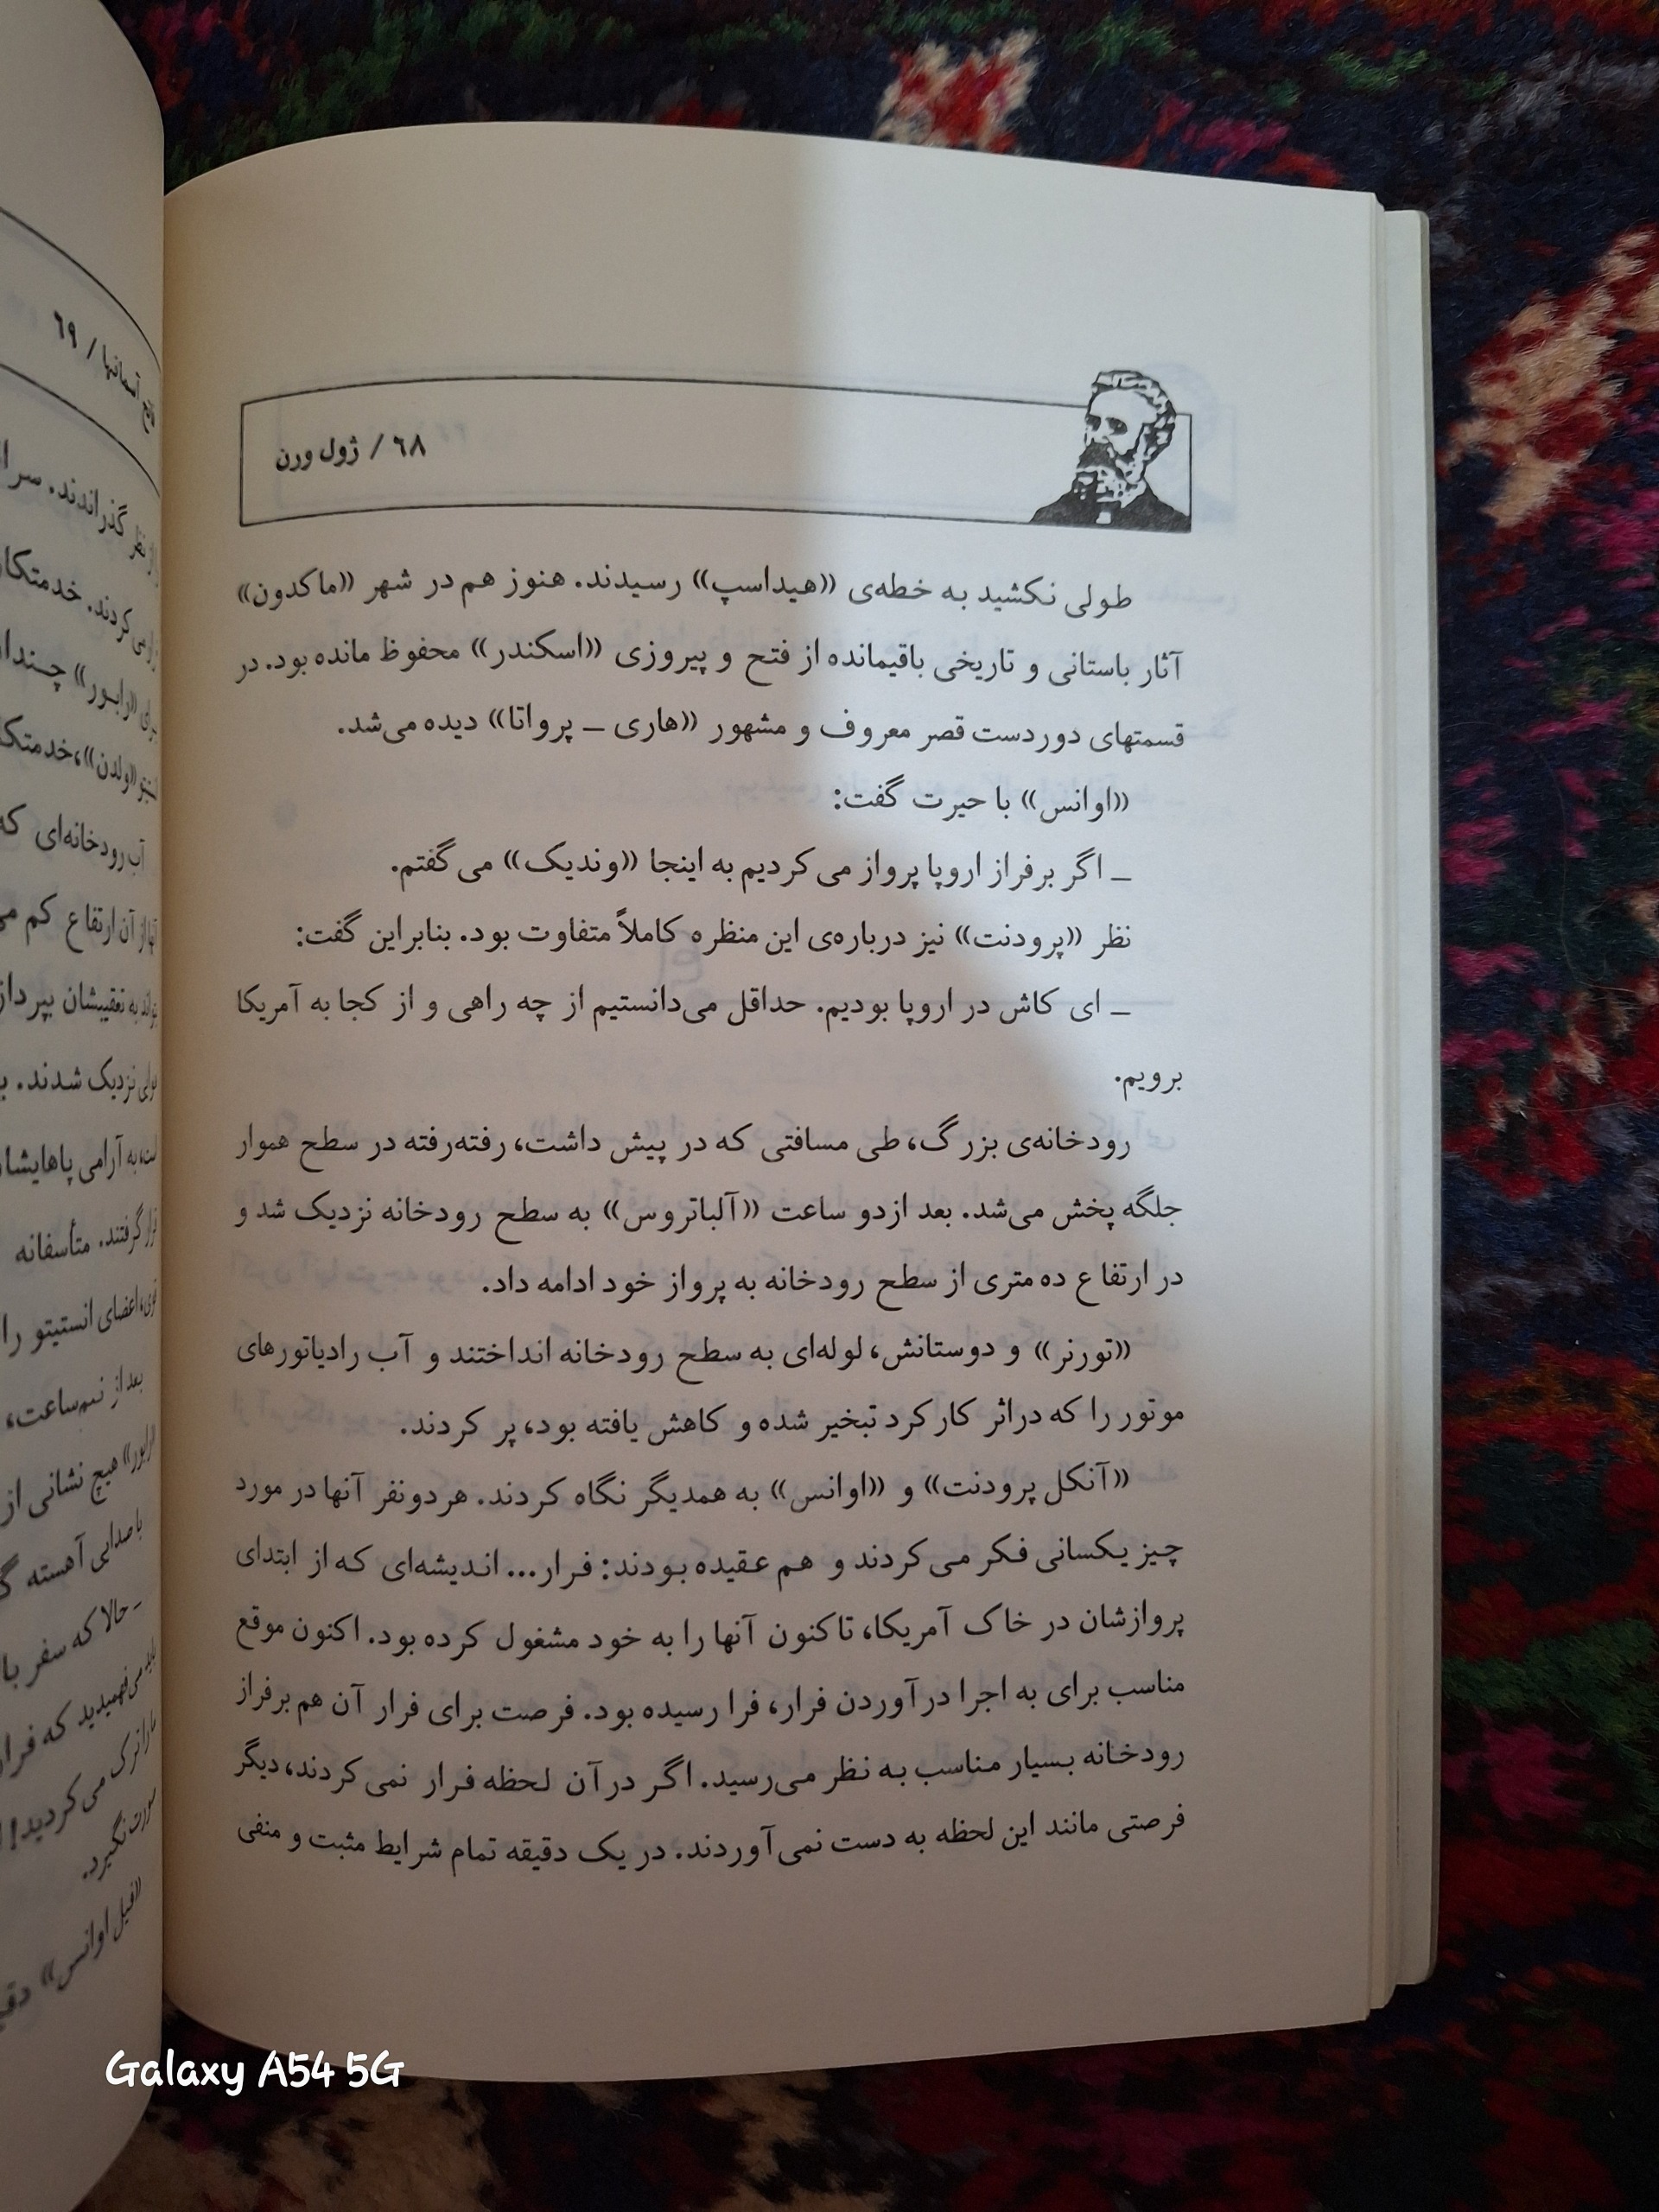 ۶۸ / ژول ورن
طولی نکشید به خطه‌ی «هیداسپ» رسیدند. هنوز هم در شهر «ماکدون»
آثار باستانی و تاریخی باقیمانده از فتح و پیروزی «اسکندر» محفوظ مانده بود. در
قسمتهای دوردست قصر معروف و مشهور «هاری – پرواتا» دیده می‌شد.
«اوانس» با حیرت گفت:
– اگر برفراز اروپا پرواز می‌کردیم به اینجا «وندیک» می‌گفتم.
نظر «پرودنت» نیز درباره‌ی این منظره کاملاً متفاوت بود. بنابراین گفت:
– ای کاش در اروپا بودیم. حداقل می‌دانستیم از چه راهی و از کجا به آمریکا
برویم.
رودخانه‌ی بزرگ، طی مسافتی که در پیش داشت، رفته‌رفته در سطح هموار
جلگه پخش می‌شد. بعد ازدو ساعت «آلباتروس» به سطح رودخانه نزدیک شد و
در ارتفاع ده متری از سطح رودخانه به پرواز خود ادامه داد.
«تورنر» و دوستانش، لوله‌ای به سطح رودخانه انداختند و آب رادیاتورهای
موتور را که دراثر کارکرد تبخیر شده و کاهش یافته بود، پر کردند.
«آنکل پرودنت» و «اوانس» به همدیگر نگاه کردند. هردونفر آنها در مورد
چیز یکسانی فکر می‌کردند و هم عقیده بودند: فرار... اندیشه‌ای که از ابتدای
پروازشان در خاک آمریکا، تاکنون آنها را به خود مشغول کرده بود. اکنون موقع
مناسب برای به اجرا درآوردن فرار، فرا رسیده بود. فرصت برای فرار آن هم برفراز
رودخانه بسیار مناسب به نظر می‌رسید. اگر درآن لحظه فرار نمی‌کردند، دیگر
فرصتی مانند این لحظه به دست نمی‌آوردند. در یک دقیقه تمام شرایط مثبت و منفی
آسمانها / ۶۹
نظر گذراندند.
می‌کردند.
«رابور»
«ولدن»، خدمتکار
آب رودخانه‌ای که
آن ارتفاع کم
به تعقیبشان
نزدیک شدند.
به آرامی پاهایشان
قرار گرفتند. متأسفانه
اعضای انستیتو را
بعد از نیم‌ساعت،
هیچ نشانی از
با صدایی آهسته
- حالا که سفر با
می‌فهمیدید که فرار
را ترک می‌کردید!
صورت نگیرد.
«فیل اوانس»
Galaxy A54 5G